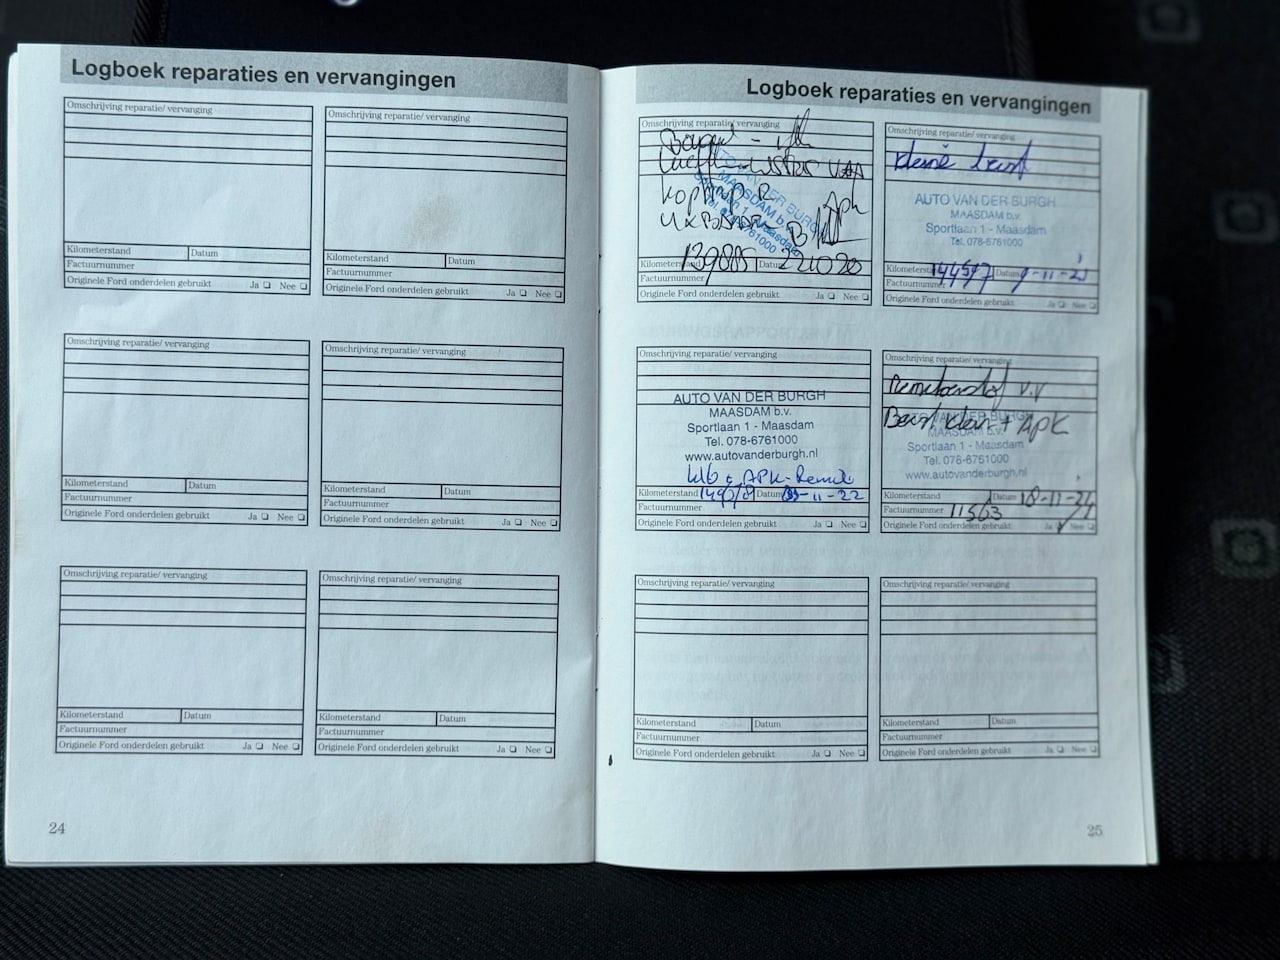 Logboek reparaties en vervangingen
Omschrijving reparatie/ vervanging
Kilometerstand Datum
Factuurnummer
Originele Ford onderdelen gebruikt Ja Nee
Omschrijving reparatie/ vervanging
Kilometerstand Datum
Factuurnummer
Originele Ford onderdelen gebruikt Ja Nee
Omschrijving reparatie/ vervanging
Kilometerstand Datum
Factuurnummer
Originele Ford onderdelen gebruikt Ja Nee
Omschrijving reparatie/ vervanging
Kilometerstand Datum
Factuurnummer
Originele Ford onderdelen gebruikt Ja Nee
Omschrijving reparatie/ vervanging
Kilometerstand Datum
Factuurnummer
Originele Ford onderdelen gebruikt Ja Nee
Omschrijving reparatie/ vervanging
Kilometerstand Datum
Factuurnummer
Originele Ford onderdelen gebruikt Ja Nee
24
Logboek reparaties en vervangingen
Omschrijving reparatie/ vervanging
AUTO VAN DER BURGH
MAASDAM b.v.
Sportlaan 1 - Maasdam
Tel. 078-6761000
Apk
Kilometerstand Datum
Factuurnummer
Originele Ford onderdelen gebruikt Ja Nee
Omschrijving reparatie/ vervanging
kleine
AUTO VAN DER BURGH
MAASDAM b.v.
Sportlaan 1 - Maasdam
Tel. 078-6761000
Kilometerstand 144597 Datum
Factuurnummer
Originele Ford onderdelen gebruikt Ja Nee
Omschrijving reparatie/ vervanging
AUTO VAN DER BURGH
MAASDAM b.v.
Sportlaan 1 - Maasdam
Tel. 078-6761000
www.autovanderburgh.nl
APK
Kilometerstand Datum
Factuurnummer
Originele Ford onderdelen gebruikt Ja Nee
Omschrijving reparatie/ vervanging
v.v
Beurt klein + APK
AUTO VAN DER BURGH
MAASDAM b.v.
Sportlaan 1 - Maasdam
Tel. 078-6761000
www.autovanderburgh.nl
Kilometerstand Datum 18-11-24
Factuurnummer 11563
Originele Ford onderdelen gebruikt Ja Nee
Omschrijving reparatie/ vervanging
Kilometerstand Datum
Factuurnummer
Originele Ford onderdelen gebruikt Ja Nee
Omschrijving reparatie/ vervanging
Kilometerstand Datum
Factuurnummer
Originele Ford onderdelen gebruikt Ja Nee
25